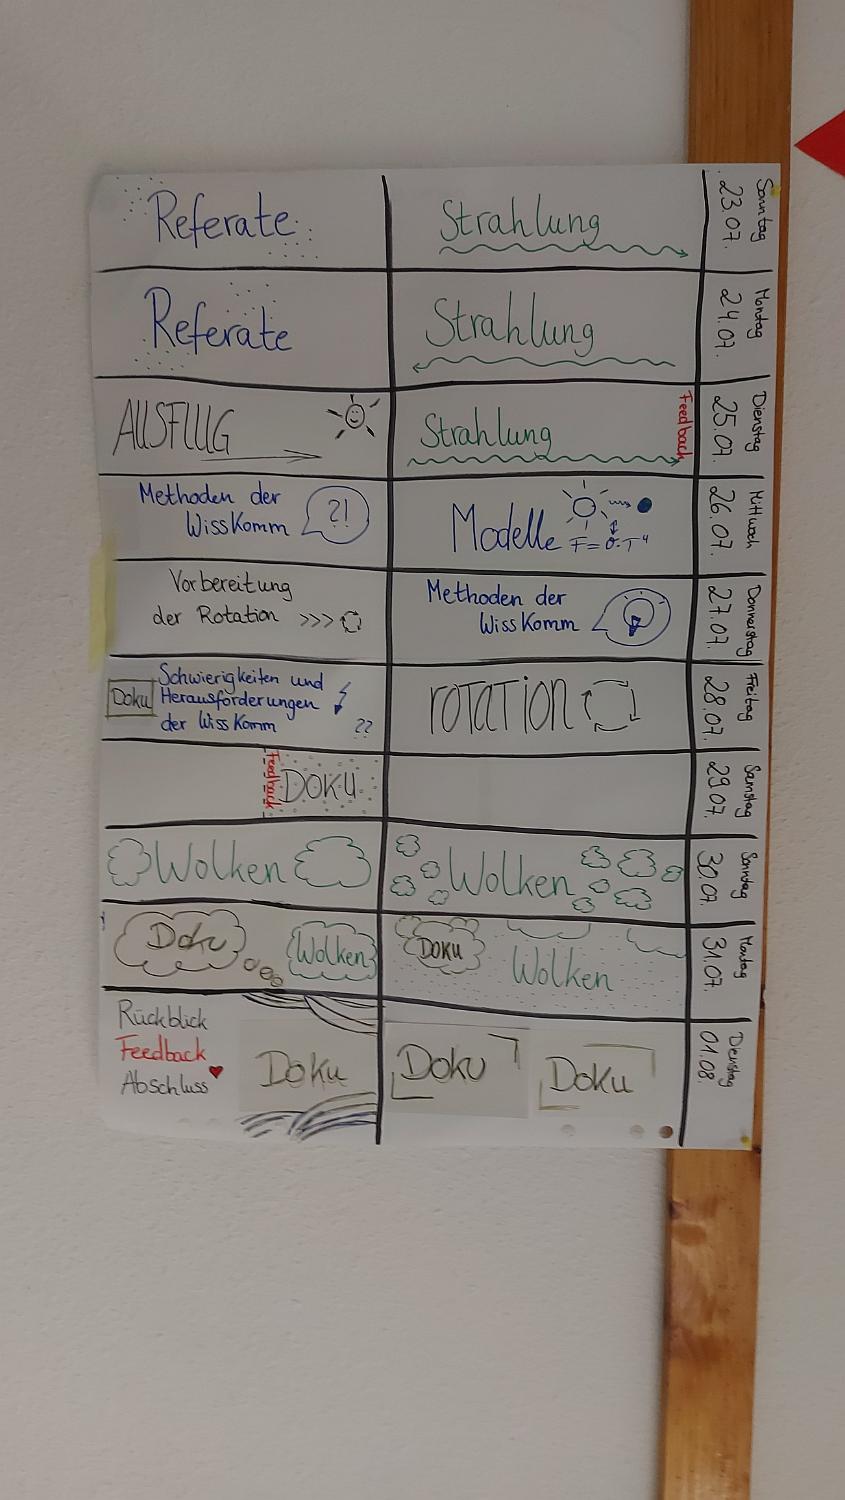 Referate
Strahlung
Sonntag
23.07.
Referate
Strahlung
Montag
24.07.
AUSFLUG
Strahlung
Feedback
Dienstag
25.07.
Methoden der
WissKomm
?!
Modelle
F=σ·T⁴
Mittwoch
26.07.
Vorbereitung
der Rotation >>>
Methoden der
WissKomm
Donnerstag
27.07.
Doku
Schwierigkeiten und
Herausforderungen
der WissKomm
??
ROTATION
Freitag
28.07.
Feedback
DOKU
Samstag
29.07.
Wolken
Wolken
Sonntag
30.07.
Doku
Wolken
DOKU
Wolken
Montag
31.07.
Rückblick
Feedback
Abschluss
Doku
Doku
Doku
Dienstag
01.08.